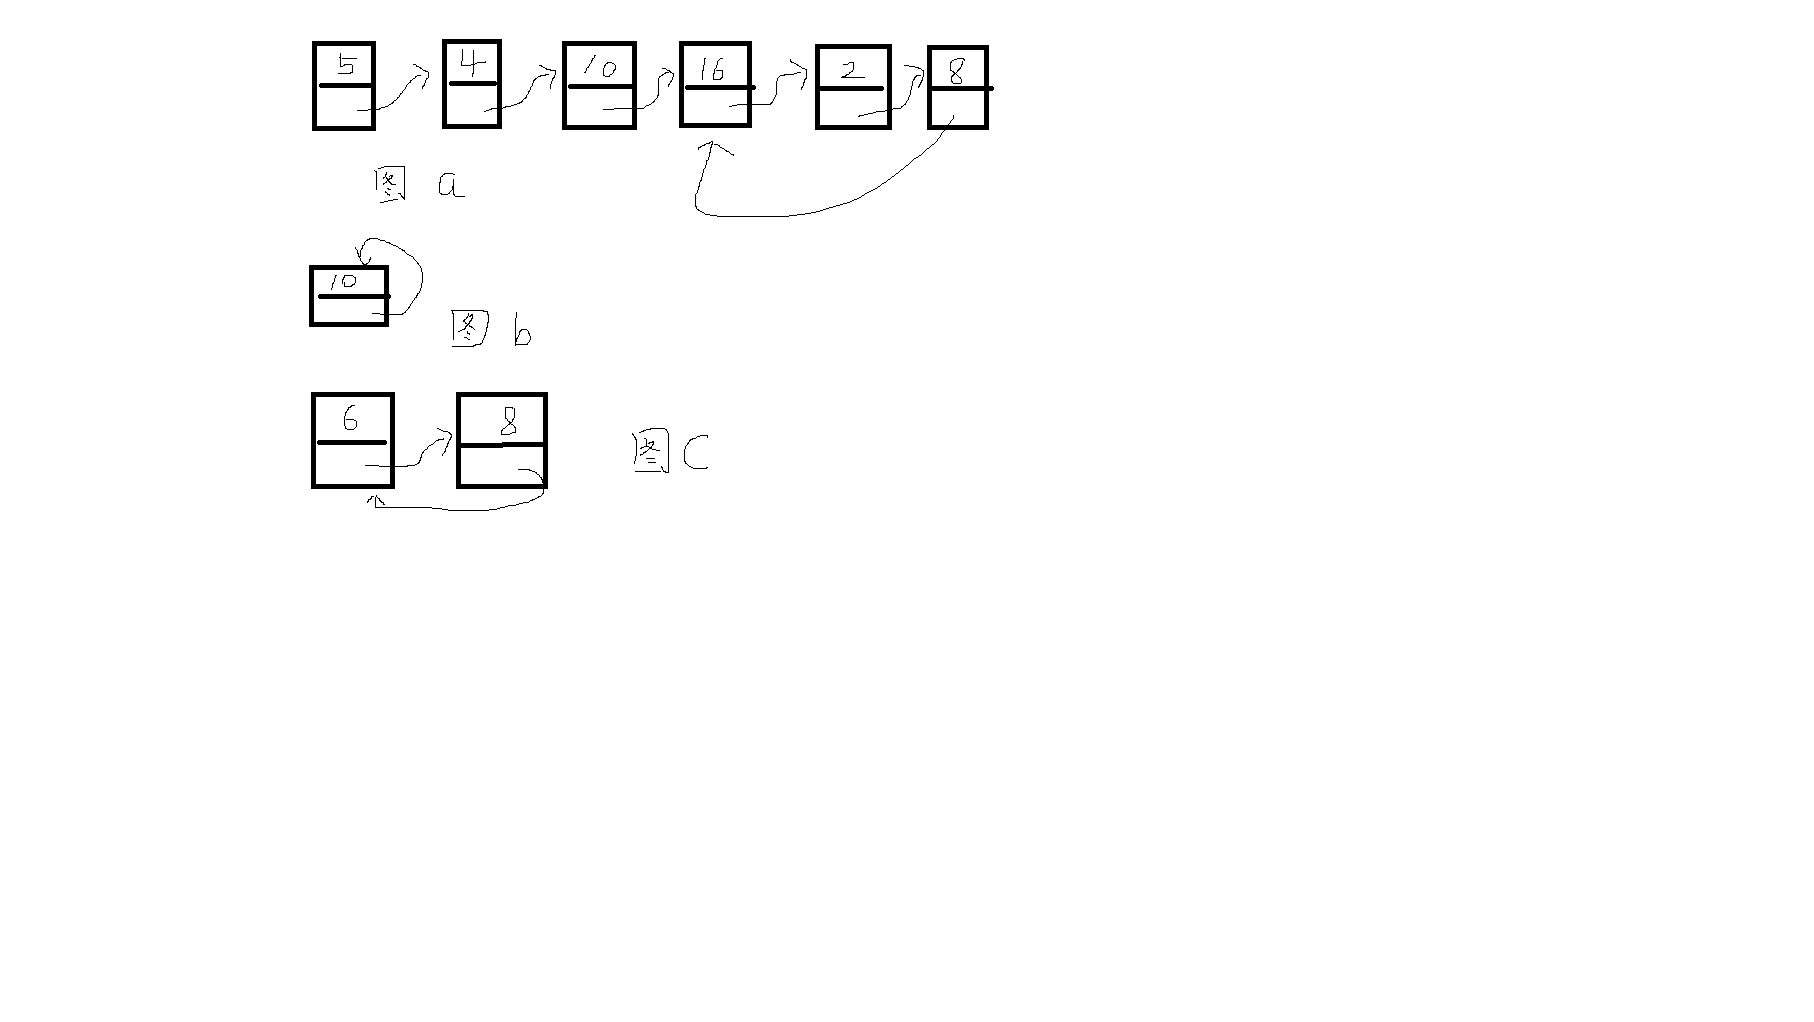 5 4 10 16 2 8
图 a
10
图 b
6 8
图 C